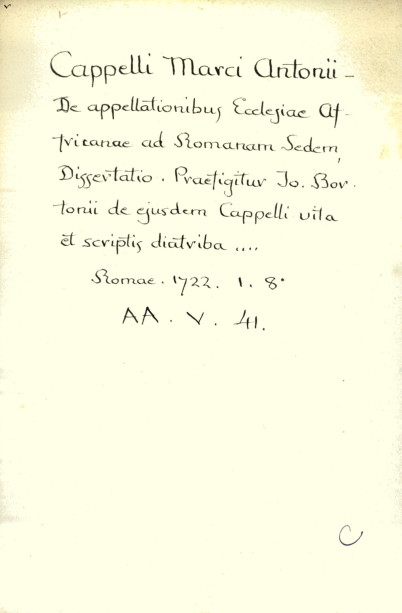 Cappelli Marci Antonii -
De appellationibus Ecclesiae Af-
fricanae ad Romanam Sedem,
Dissertatio. Praefigitur Jo. Bor-
tonii de ejusdem Cappelli vita
et scriptis diatriba ....
Romae. 1722. 1. 8°
AA. V. 41.
C